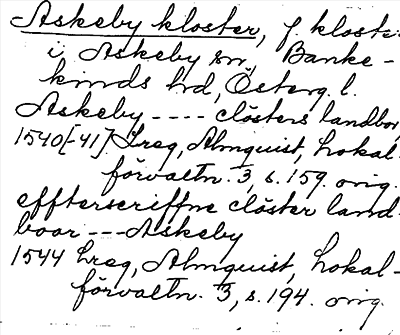 Askeby kloster, f. kloster
i Askeby sn, Banke-
kinds hd, Österg. l.
Askeby ---- clösters landbor
1540[-41] Lreg, Almquist, Lokal-
förvaltn. 3, s. 159. orig.
effterscriffne clöster land-
boar --- Askeby
1544 Lreg, Almquist, Lokal-
förvaltn. 3, s. 194. orig.